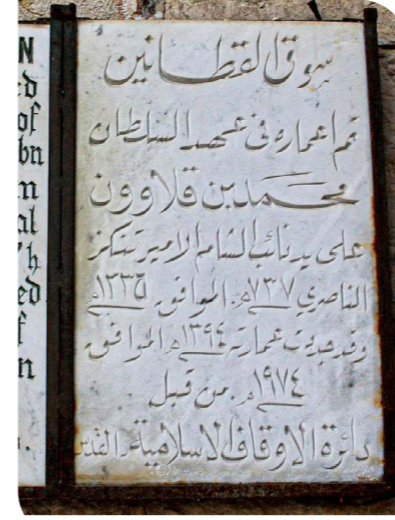 سوق القطانين
تم اعماره في عهد السلطان
محمد بن قلاوون
على يد نائب الشام الامير تنكز
الناصري ٧٣٧هـ الموافق ١٣٣٥م
وقد جددت عمارته ١٣٩٤هـ الموافق
١٩٧٤م من قبل
دائرة الاوقاف الاسلامية - القدس